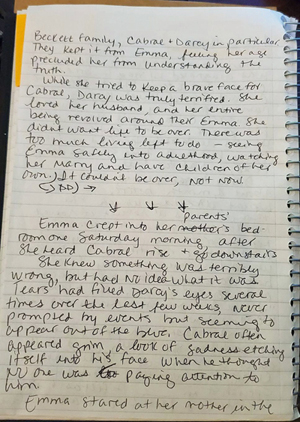 Beckett family, Cabral + Darcy in particular
They kept it from Emma, feeling her age
precluded her from understanding the
truth.
While she tried to keep a brave face for
Cabral, Darcy was truly terrified. She
loved her husband, and her entire
being revolved around their Emma. She
didn't want life to be over. There was
too much living left to do – seeing
Emma safely into adulthood, watching
her marry and have children of her
own. It couldn't be over, not now.
parents'
Emma crept into her mother's bed-
room one Saturday morning, after
she heard Cabral rise + go downstairs
She knew something was terribly
wrong, but had no idea what it was
Tears had filled Darcy's eyes several
times over the last few weeks, never
prompted by events but seeming to
appear out of the blue. Cabral often
appeared grim, a look of sadness etching
itself into his face when he thought
no one was paying attention to
him.
Emma stared at her mother in the